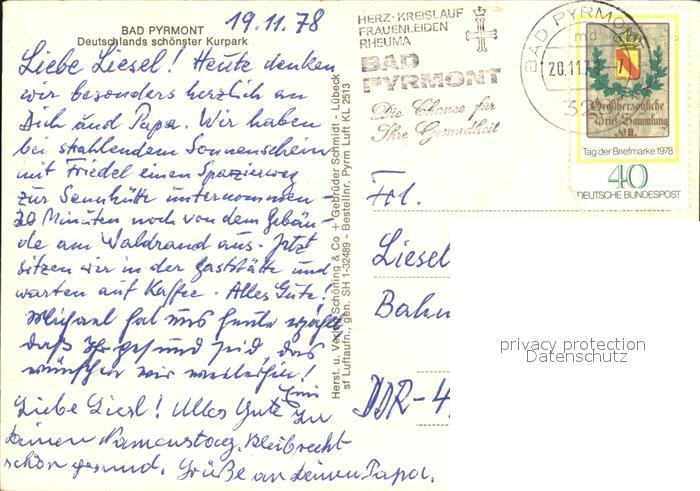 19.11.78
BAD PYRMONT
Deutschlands schönster Kurpark
Liebe Liesel! Heute denken
wir besonders herzlich an
Dich und Papa. Wir haben
bei strahlendem Sonnenschein
mit Friedel einen Spazierweg
zur Sennhütte unternommen -
20 Minuten noch von dem Gebäu-
de am Waldrand aus. Jetzt
sitzen wir in der Gaststätte und
warten auf Kaffee. Alles Gute!
Michael hat uns heute erzählt
daß Ihr gesund seid, das
wünschen wir weiterhin!
Liebe Liesl! Alles Gute zu
Deinem Namenstag. Bleib recht
schön gesund. Grüße an Deinen Papa.
Herst. u. Verlag Schöning & Co + Gebrüder Schmidt - Lübeck
sf Luftaufn., gen. SH 1-32489 - Bestellnr. Pyrm Luft KL 2513
HERZ-KREISLAUF
FRAUENLEIDEN
RHEUMA
BAD
PYRMONT
Die Chance für
Ihre Gesundheit
BAD PYRMONT
md
20.11.78
32
Großherzogliche
Brief-Sammlung
No. II.
Tag der Briefmarke 1978
40
DEUTSCHE BUNDESPOST
Frl.
Liesel
Bahn
DDR-4
privacy protection
Datenschutz